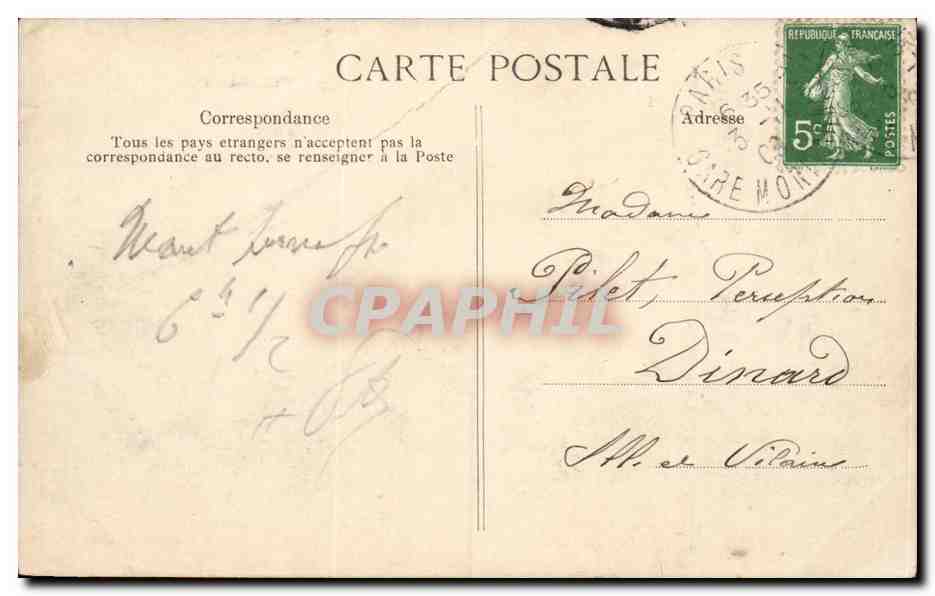 CARTE POSTALE
REPUBLIQUE FRANÇAISE
5c
POSTES
PARIS
6 35
GARE MON
Correspondance
Tous les pays etrangers n'acceptent pas la
correspondance au recto, se renseigner à la Poste
Adresse
Madame
Pilet, Perception
Dinard
Ill. et Vilaine
6h 1/2
CPAPHIL